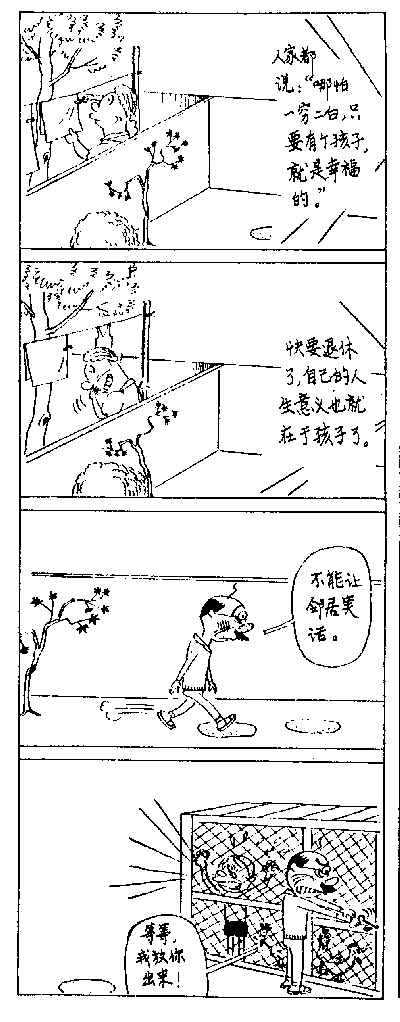 人家都
说：“哪怕
一穷二白，只
要有个孩子，
就是幸福
的。”
快要退休
了，自己的人
生意义也就
在于孩子了。
不能让
邻居笑
话。
等等，
我放你
出来！